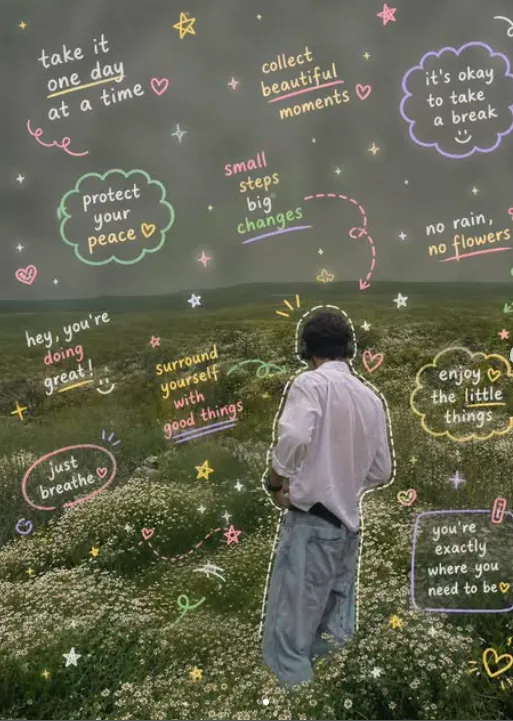 take it
one day
at a time
collect
beautiful
moments
it's okay
to take
a break
protect
your
peace
small
steps
big
changes
no rain,
no flowers
hey, you're
doing
great!
surround
yourself
with
good things
enjoy
the little
things
just
breathe
you're
exactly
where you
need to be